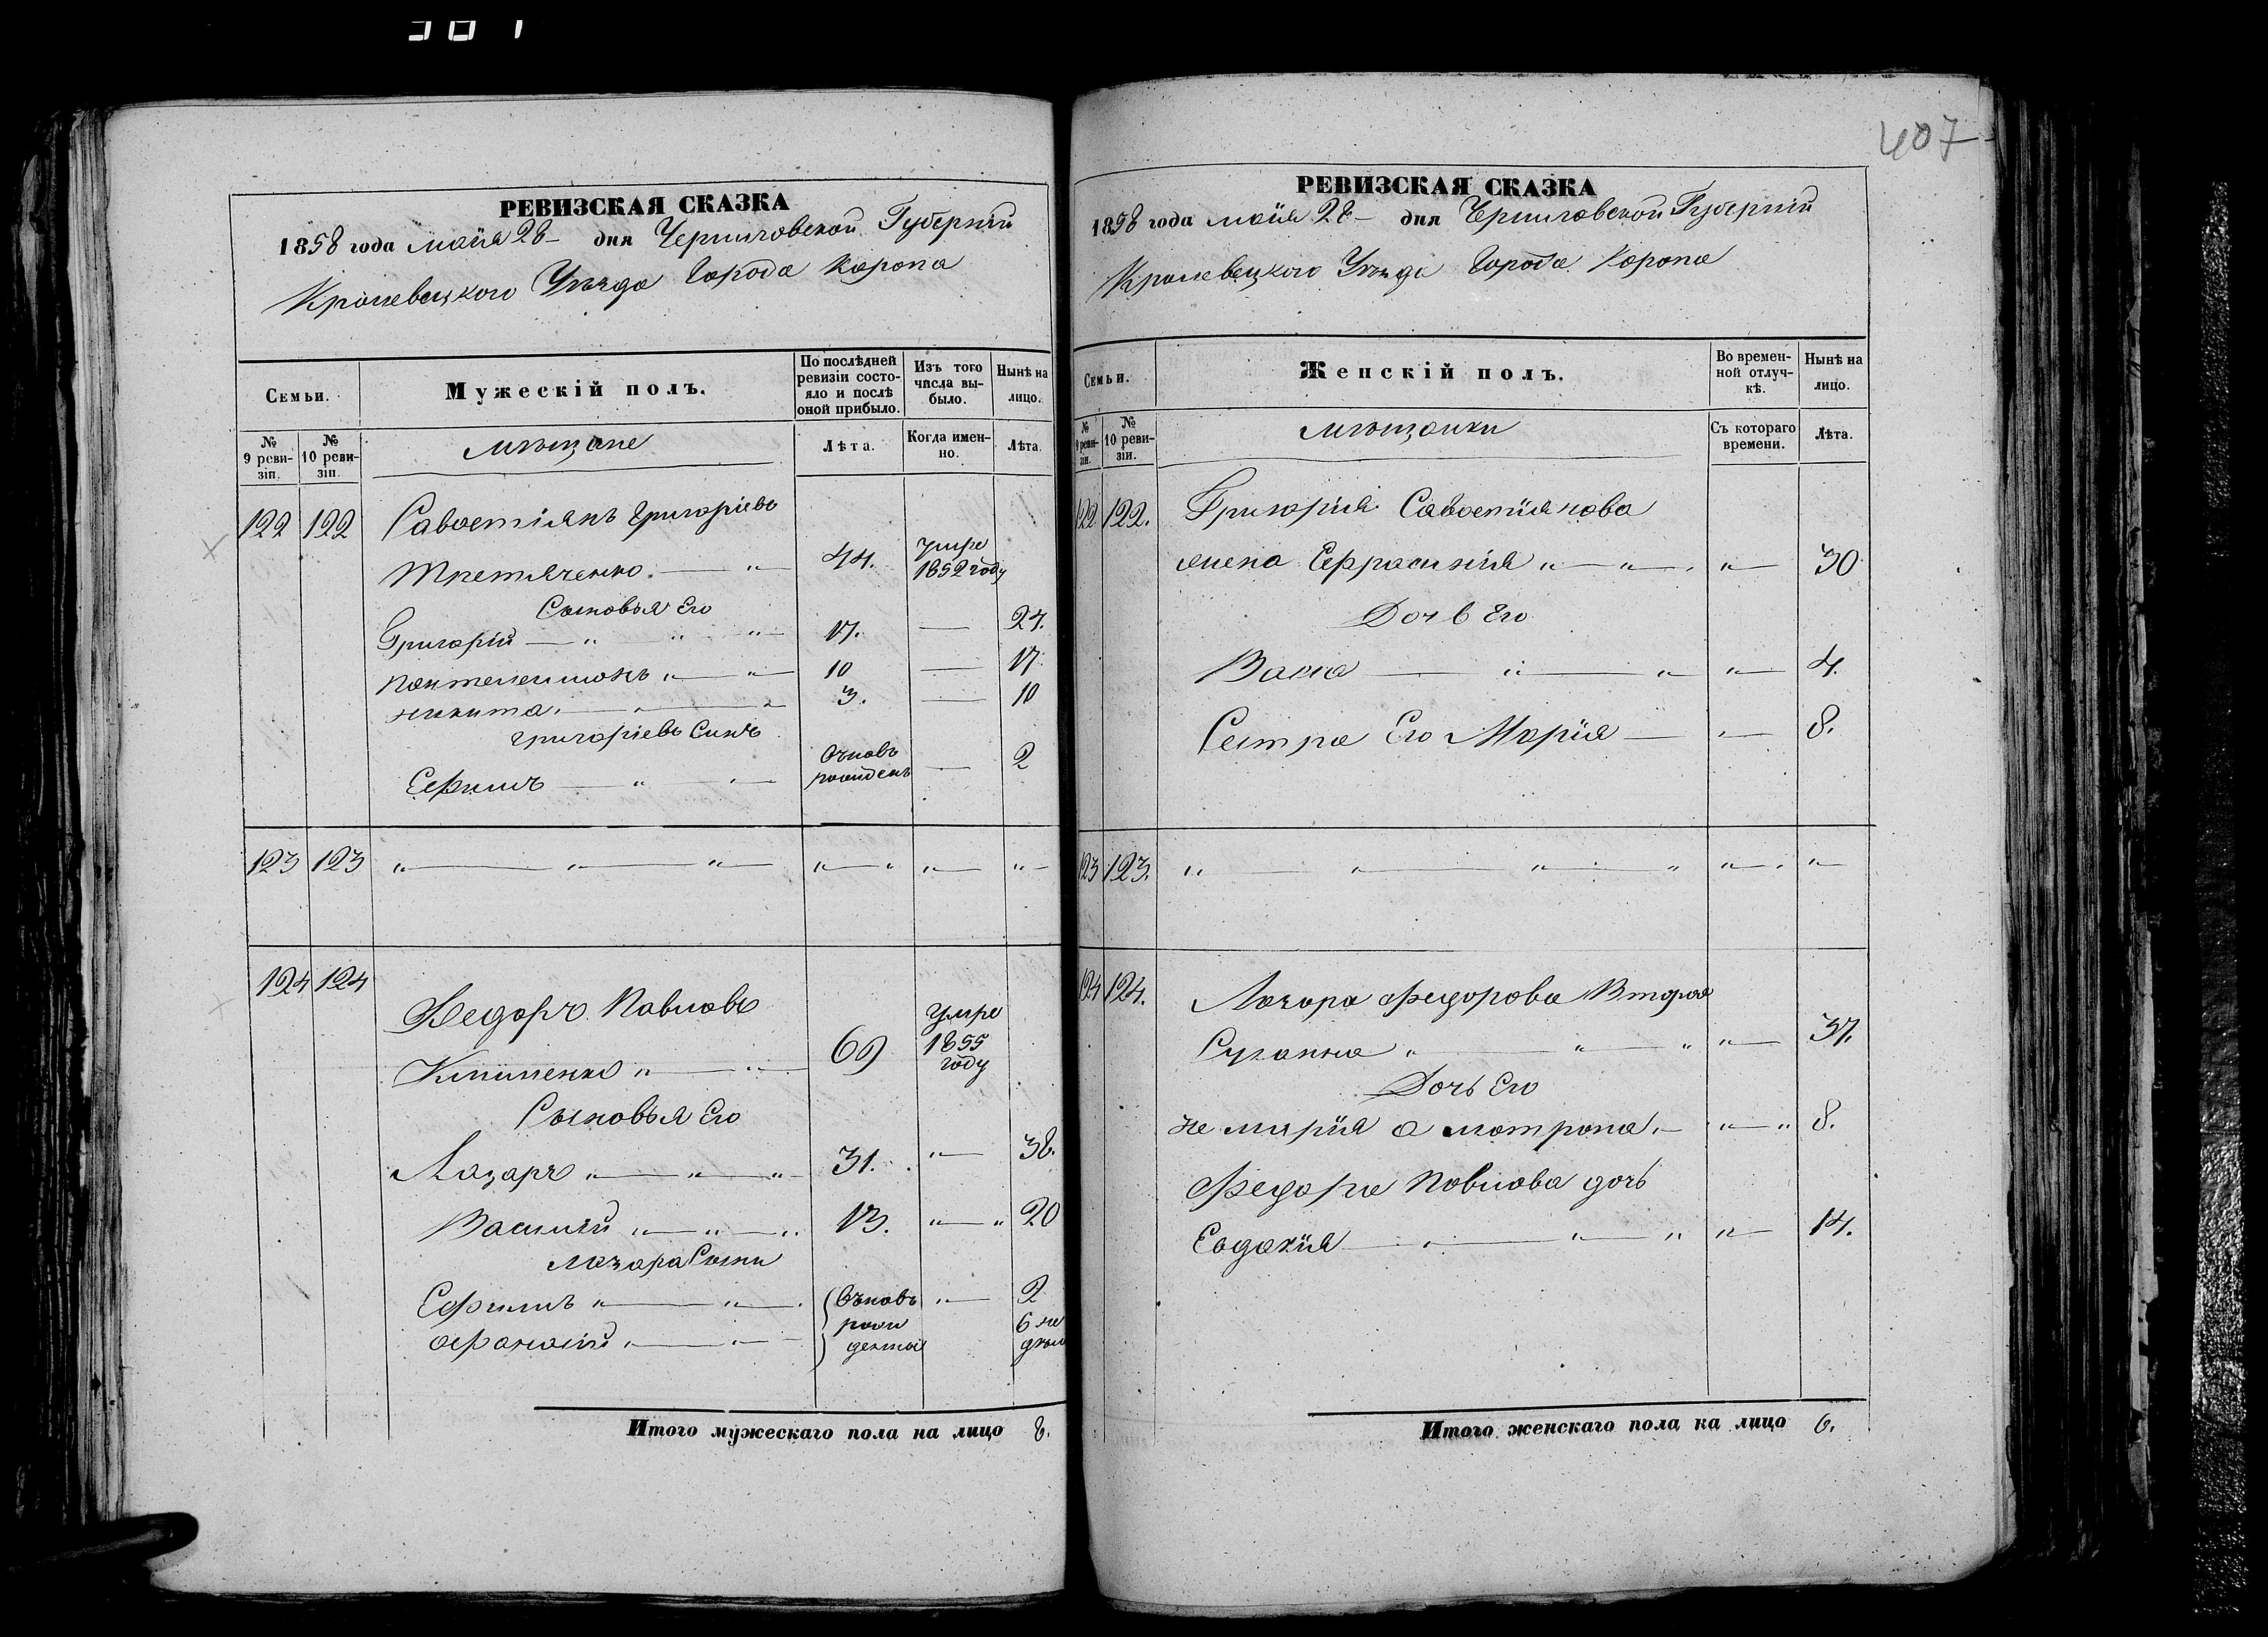 407
РЕВИЗСКАЯ СКАЗКА
1858 года маія 28 дня Черниговской Губерніи
Кролевецкого Уѣзда Города Коропа
Семьи.
Мужескій полъ.
По послѣдней ревизіи состояло и послѣ оной прибыло.
Изъ того числа выбыло.
Нынѣ на лицо.
№ 9 ревизіи.
№ 10 ревизіи.
мѣщане
Лѣта.
Когда именно.
Лѣта.
122 122 Савостіянъ Григоріевъ
Третяченко 44. умре 1852 году
Сыновья Его
Григорій 17. 24.
Пантелеимонъ 10 17.
никита 3. 10
григоріевъ Сынъ
Ефимъ вновь рожденъ 2
123 123
124 124
Федоръ Павловъ
Клименко 69 умре 1855 году
Сыновья Его
Лазарь 31. 38.
Василій 13. 20
лазара Сыны
Ефимъ вновь 2
афанасій рожденные 6 недѣль
Итого мужескаго пола на лицо 8.
РЕВИЗСКАЯ СКАЗКА
1858 года маія 28 дня Черниговской Губерніи
Кролевецкого Уѣзда Города Коропа
Семьи.
Женскій полъ.
Во временной отлучкѣ.
Нынѣ на лицо.
№ 9 ревизіи.
№ 10 ревизіи.
мѣщанки
Съ котораго времени.
Лѣта.
122 122. Григорія Савостіянова
жена Ефросинія 30
Дочь Его
Васса 4.
Сестра Его Марія 8.
123 123.
124 124. Лазора Федорова Вторая
Сузанна 37.
Дочь Его
не марія а матрона 8.
Федора Павлова дочь
Евдокія 14.
Итого женскаго пола на лицо 6.